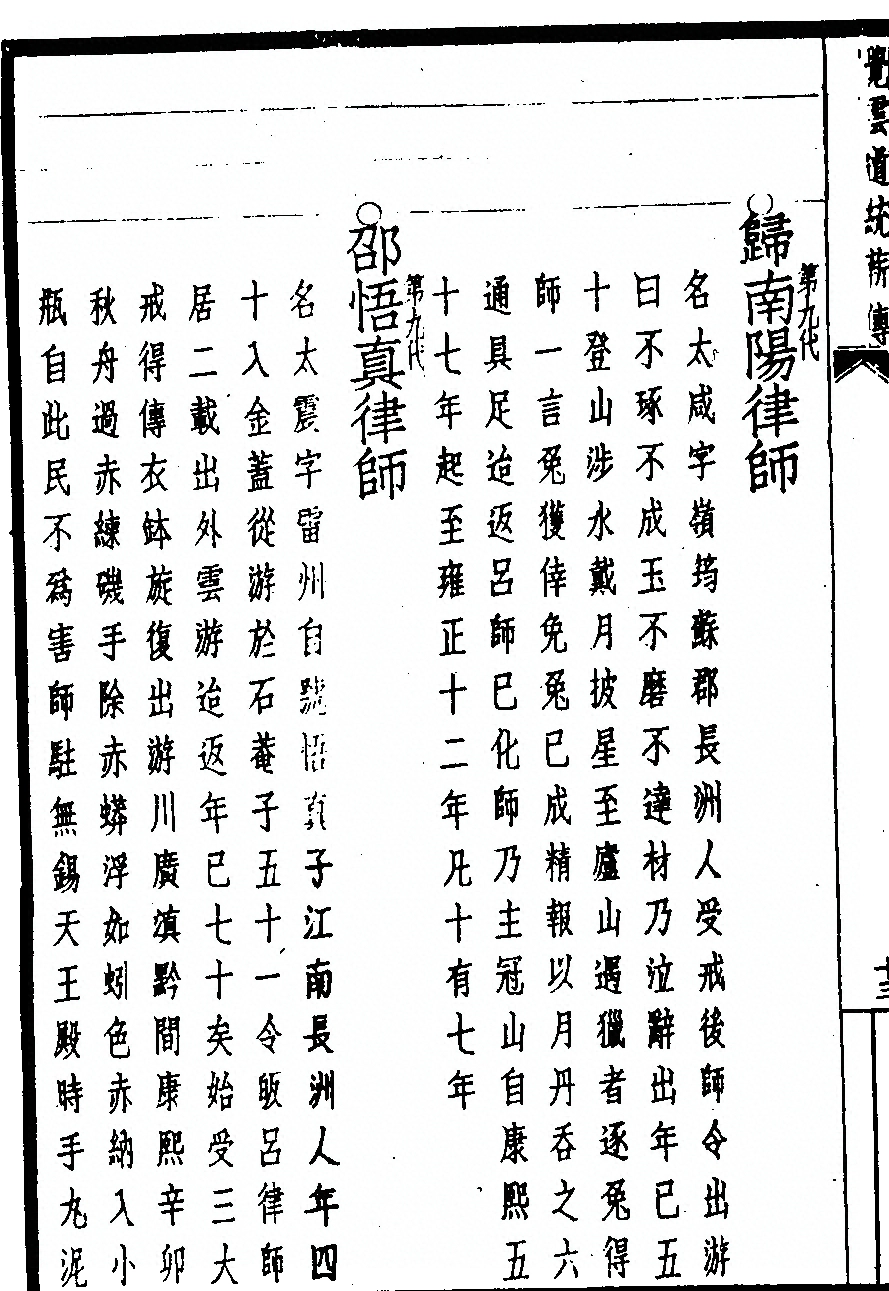 覺雲道統薪傳
十三
歸南陽律師
第九代
名太咸字嶺筠蘇郡長洲人受戒後師令出游
曰不琢不成玉不磨不達材乃泣辭出年已五
十登山涉水戴月披星至廬山遇獵者逐兔得
師一言兔獲倖免兔已成精報以月丹吞之六
通具足迨返呂師已化師乃主冠山自康熙五
十七年起至雍正十二年凡十有七年
邵悟真律師
第九代
名太震字雷州自號悟真子江南長洲人年四
十入金蓋從游於石菴子五十一令皈呂律師
居二載出外雲游迨返年已七十矣始受三大
戒得傳衣鉢旋復出游川廣滇黔間康熙辛卯
秋舟過赤練磯手除赤蟒浮如蚓色赤納入小
瓶自此民不為害師駐無錫天王殿時手丸泥